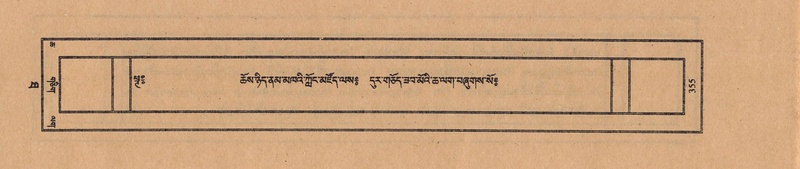 གཅིག
ཆོས་ཉིད་ནམ་མཁའི་ཀློང་མཛོད་ལས༔ དུར་གཅོད་ཟབ་མོའི་ཆ་ལག་བཞུགས་སོ༔
355